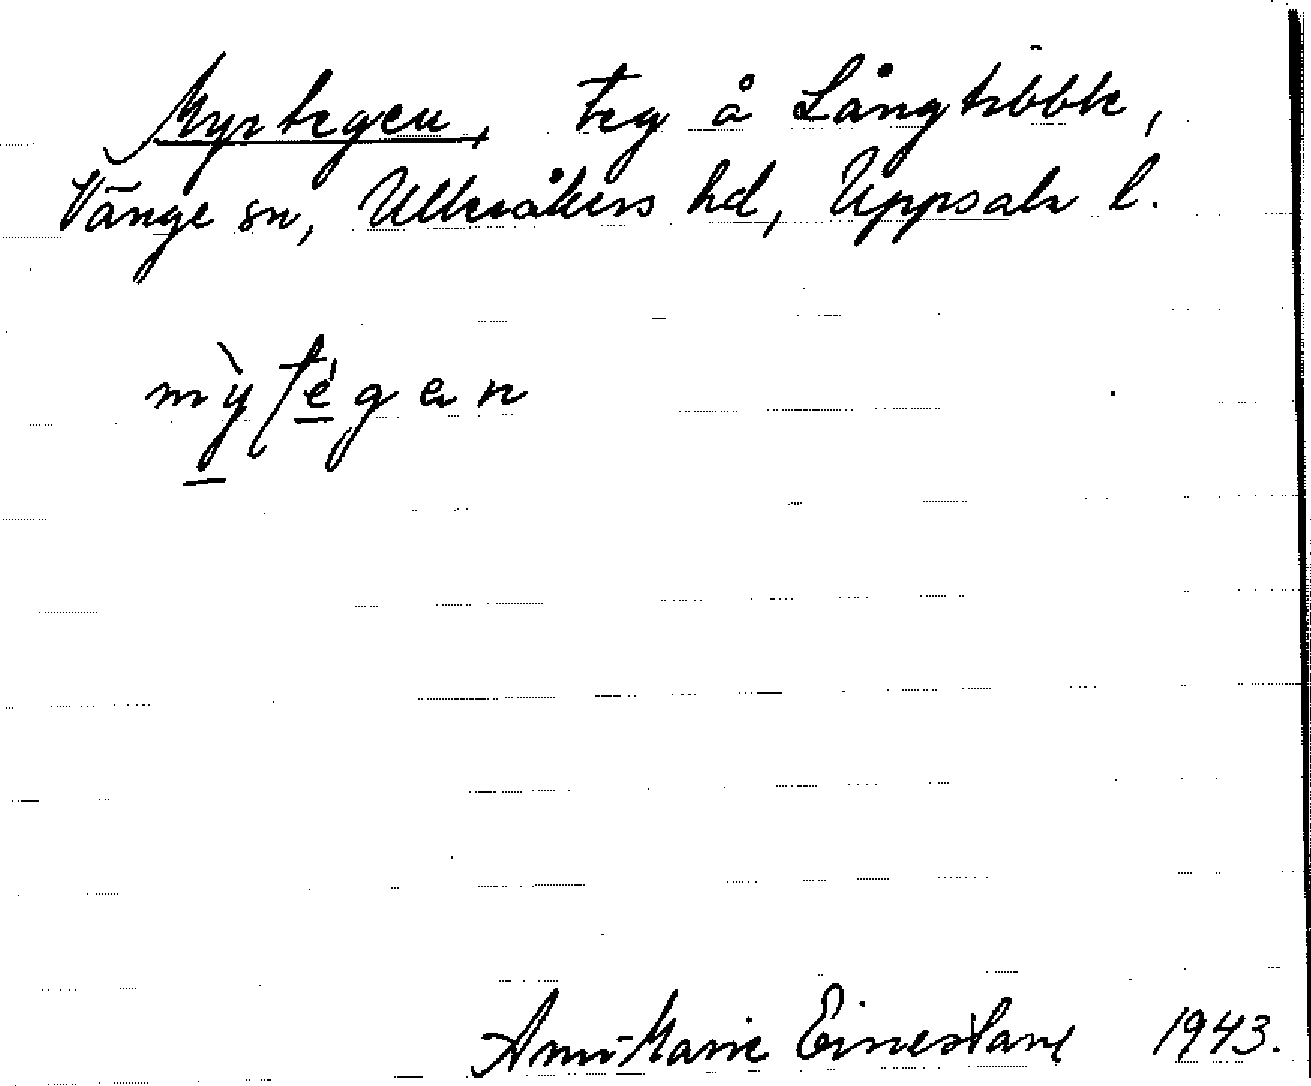 Myrtegen, teg å Långtibble,
Vänge sn, Ulleråkers hd, Uppsala l.
mỳtégan
Ann-Marie 1943.